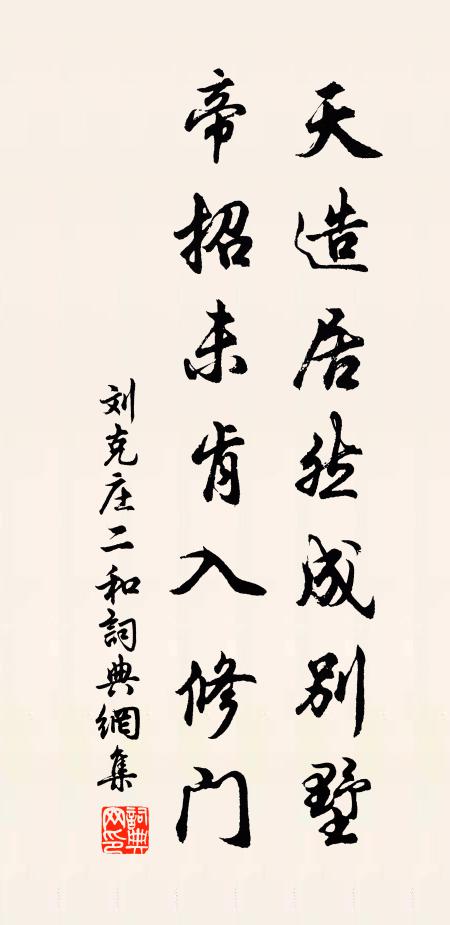 天造居然成别墅
帝招未肯入修门
刘克庄二和詞典網集
詞典网印